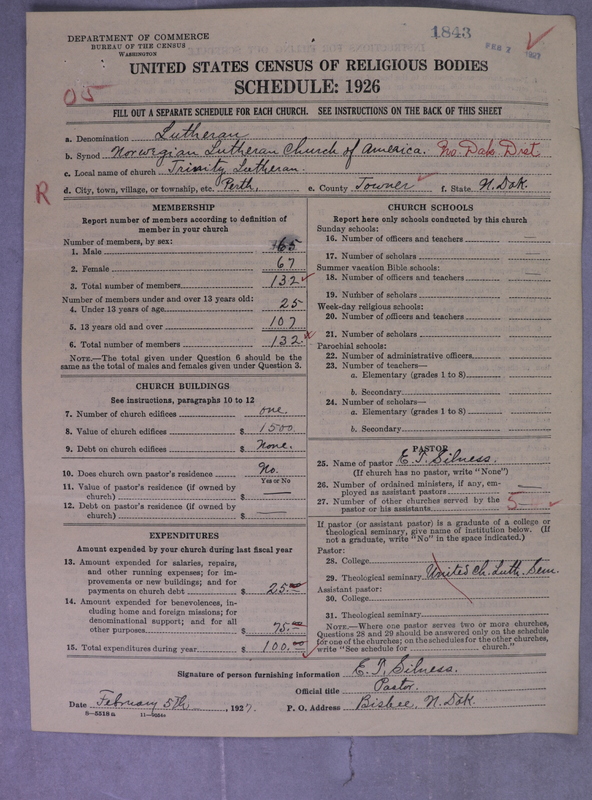 DEPARTMENT OF COMMERCE
BUREAU OF THE CENSUS
WASHINGTON
1843
FEB 7 1927
UNITED STATES CENSUS OF RELIGIOUS BODIES
SCHEDULE: 1926
05
FILL OUT A SEPARATE SCHEDULE FOR EACH CHURCH. SEE INSTRUCTIONS ON THE BACK OF THIS SHEET
a. Denomination Lutheran
b. Synod Norwegian Lutheran Church of America. No. Dak. Dist
c. Local name of church Trinity Lutheran.
d. City, town, village, or township, etc. Perth, e. County Towner f. State N. Dak.
R
MEMBERSHIP
Report number of members according to definition of member in your church
Number of members, by sex:
1. Male 65
2. Female 67
3. Total number of members 132
Number of members under and over 13 years old:
4. Under 13 years of age 25
5. 13 years old and over 107
6. Total number of members 132
NOTE.—The total given under Question 6 should be the
same as the total of males and females given under Question 3.
CHURCH BUILDINGS
See instructions, paragraphs 10 to 12
7. Number of church edifices one
8. Value of church edifices $ 1500.
9. Debt on church edifices $ None.
10. Does church own pastor's residence No.
Yes or No
11. Value of pastor's residence (if owned by
church) $ —
12. Debt on pastor's residence (if owned by
church) $ —
EXPENDITURES
Amount expended by your church during last fiscal year
13. Amount expended for salaries, repairs,
and other running expenses; for im-
provements or new buildings; and for
payments on church debt $ 25.00
14. Amount expended for benevolences, in-
cluding home and foreign missions; for
denominational support; and for all
other purposes $ 75.00
15. Total expenditures during year $ 100.00
CHURCH SCHOOLS
Report here only schools conducted by this church
Sunday schools:
16. Number of officers and teachers —
17. Number of scholars —
Summer vacation Bible schools:
18. Number of officers and teachers —
19. Number of scholars
Week-day religious schools:
20. Number of officers and teachers
21. Number of scholars
Parochial schools:
22. Number of administrative officers
23. Number of teachers—
a. Elementary (grades 1 to 8)
b. Secondary
24. Number of scholars—
a. Elementary (grades 1 to 8)
b. Secondary
PASTOR
25. Name of pastor E. T. Silness.
(If church has no pastor, write "None")
26. Number of ordained ministers, if any, em-
ployed as assistant pastors —
27. Number of other churches served by the
pastor or his assistants 5
If pastor (or assistant pastor) is a graduate of a college or
theological seminary, give name of institution below. (If
not a graduate, write "No" in the space indicated.)
Pastor:
28. College
29. Theological seminary United Ch. Luth. Sem.
Assistant pastor:
30. College
31. Theological seminary
NOTE.—Where one pastor serves two or more churches,
Questions 28 and 29 should be answered only on the schedule
for one of the churches; on the schedules for the other churches,
write "See schedule for church."
Signature of person furnishing information E. T. Silness.
Official title Pastor.
Date February 5th, 1927. P. O. Address Bisbee, N. Dak.